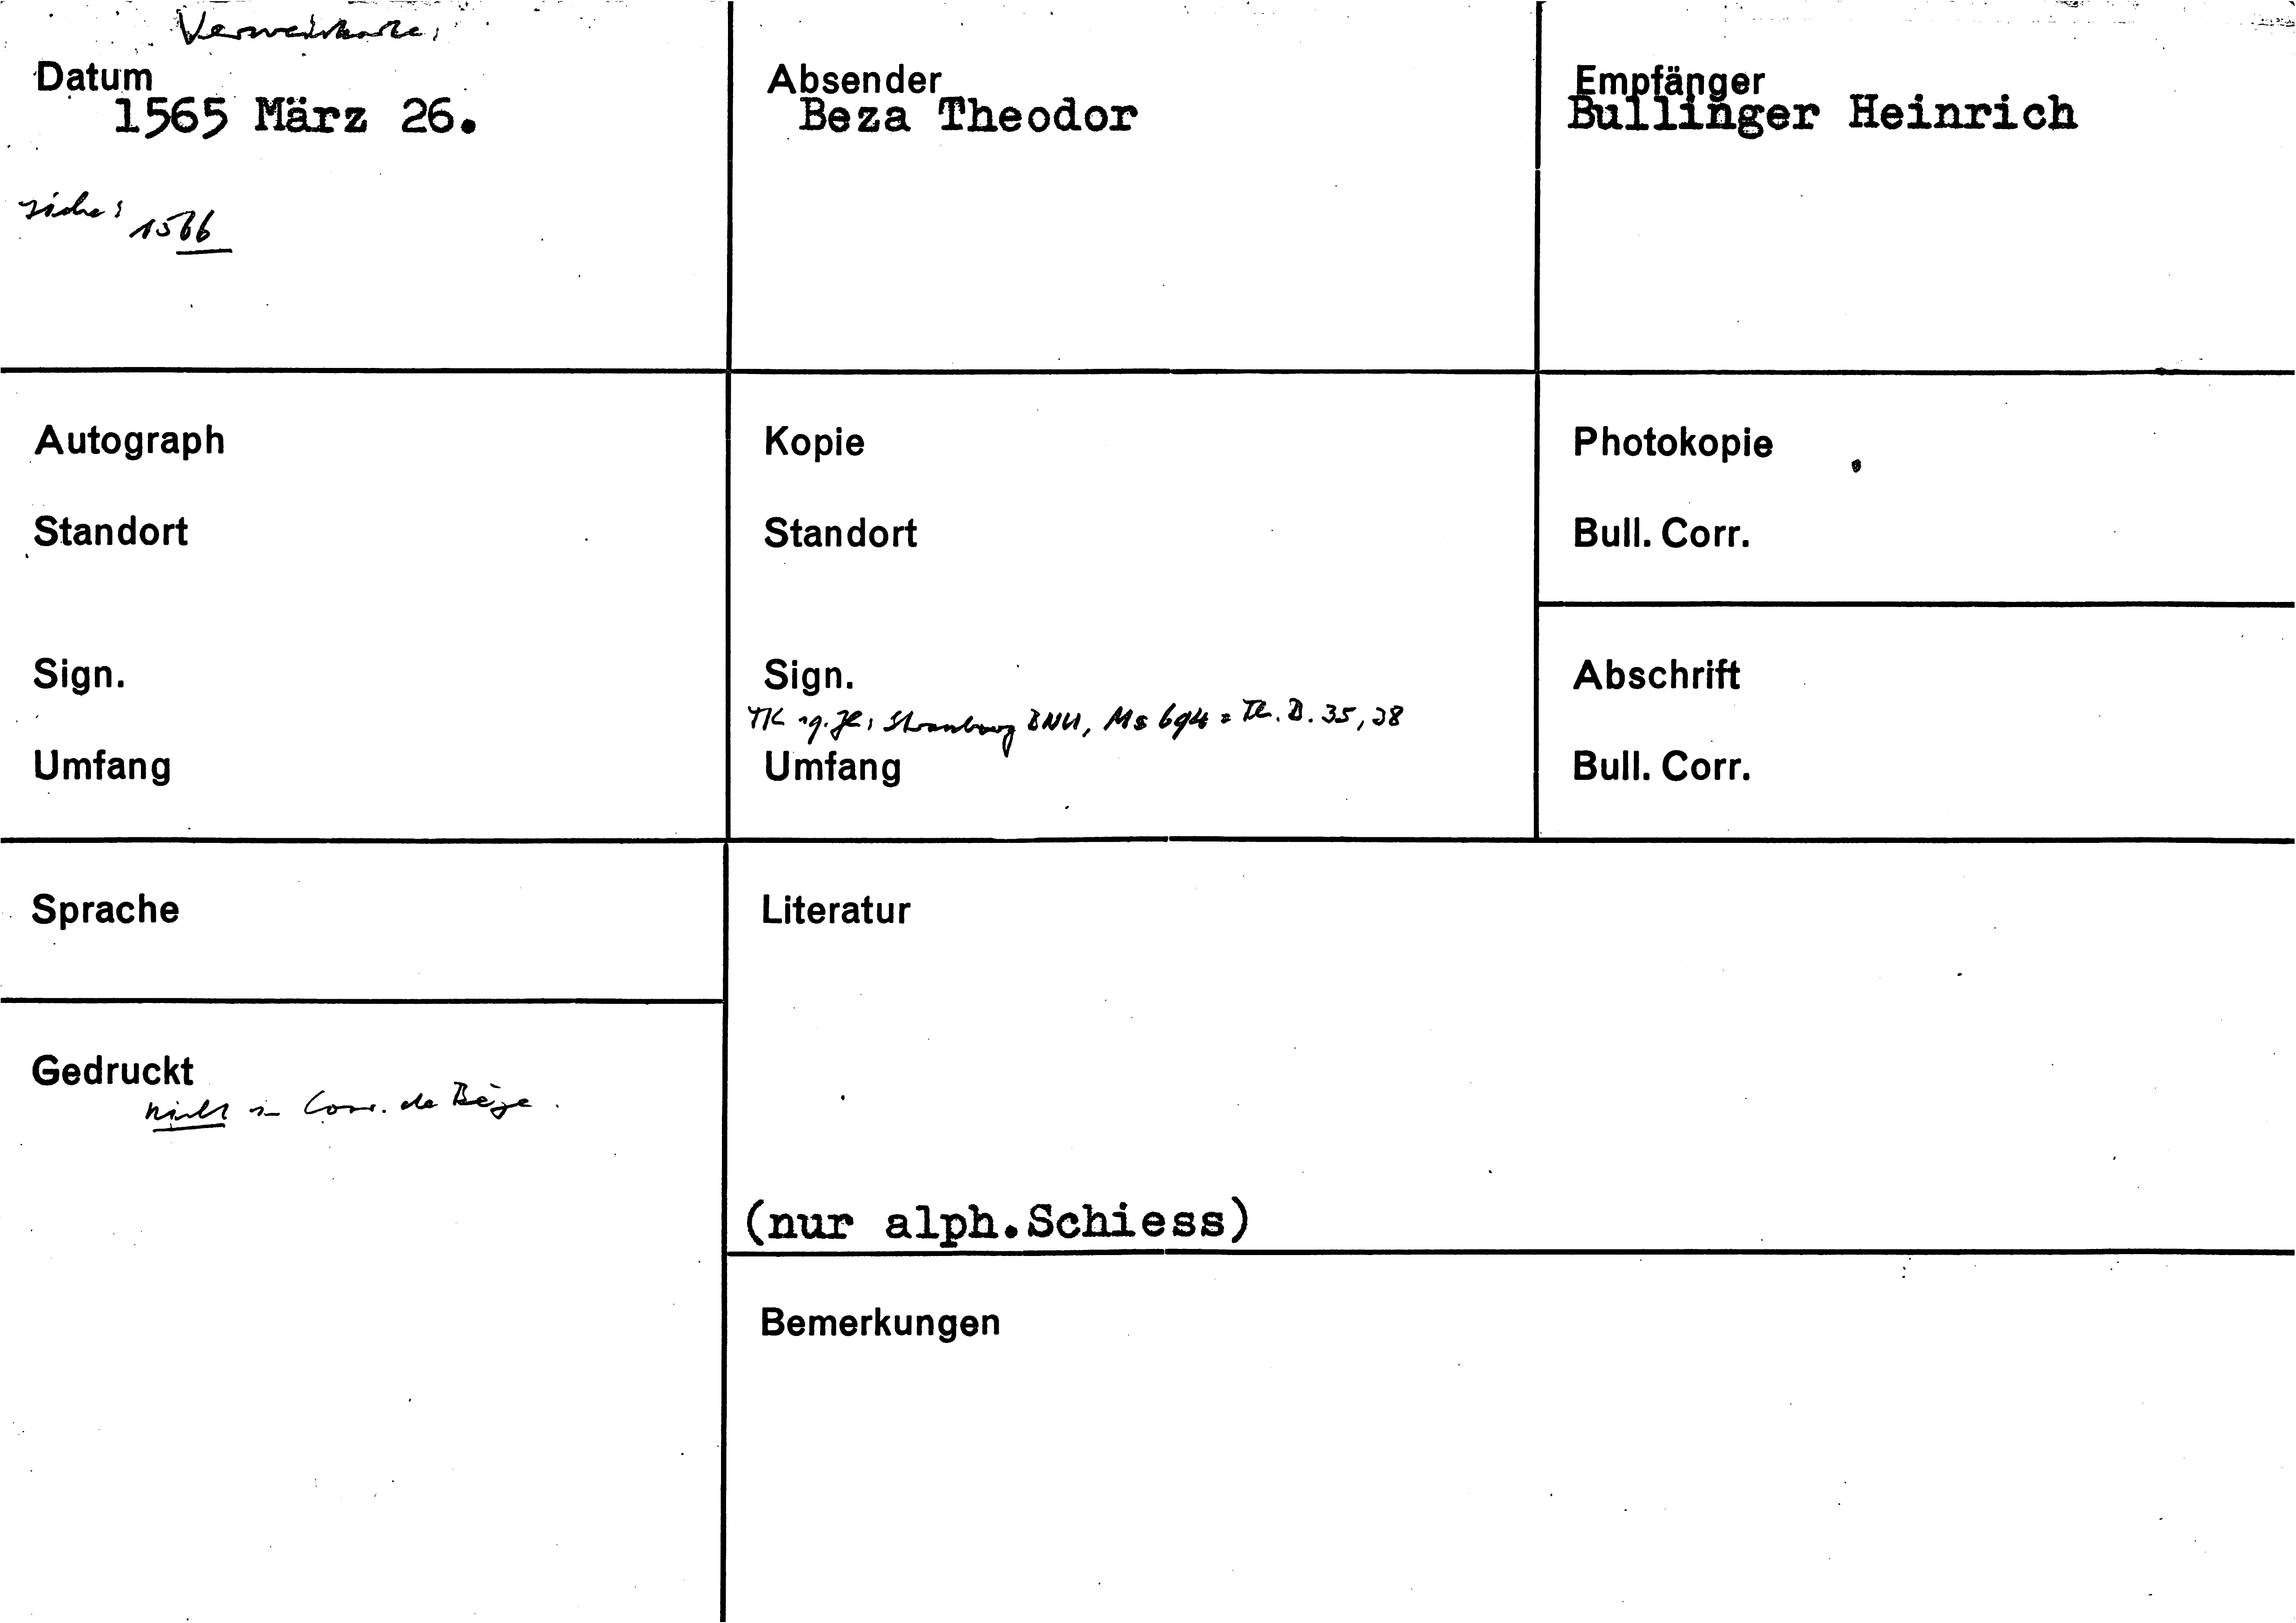 Verweiskarte:
Datum
1565 März 26.
siehe: 1566
Absender
Beza Theodor
Empfänger
Bullinger Heinrich
Autograph
Standort
Sign.
Umfang
Kopie
Standort
Sign.
Strassburg BNU, Ms 694 = Th. B. 35, 38
Umfang
Photokopie
Bull. Corr.
Abschrift
Bull. Corr.
Sprache
Gedruckt
nicht in Corr. de Bèze.
Literatur
(nur alph.Schiess)
Bemerkungen